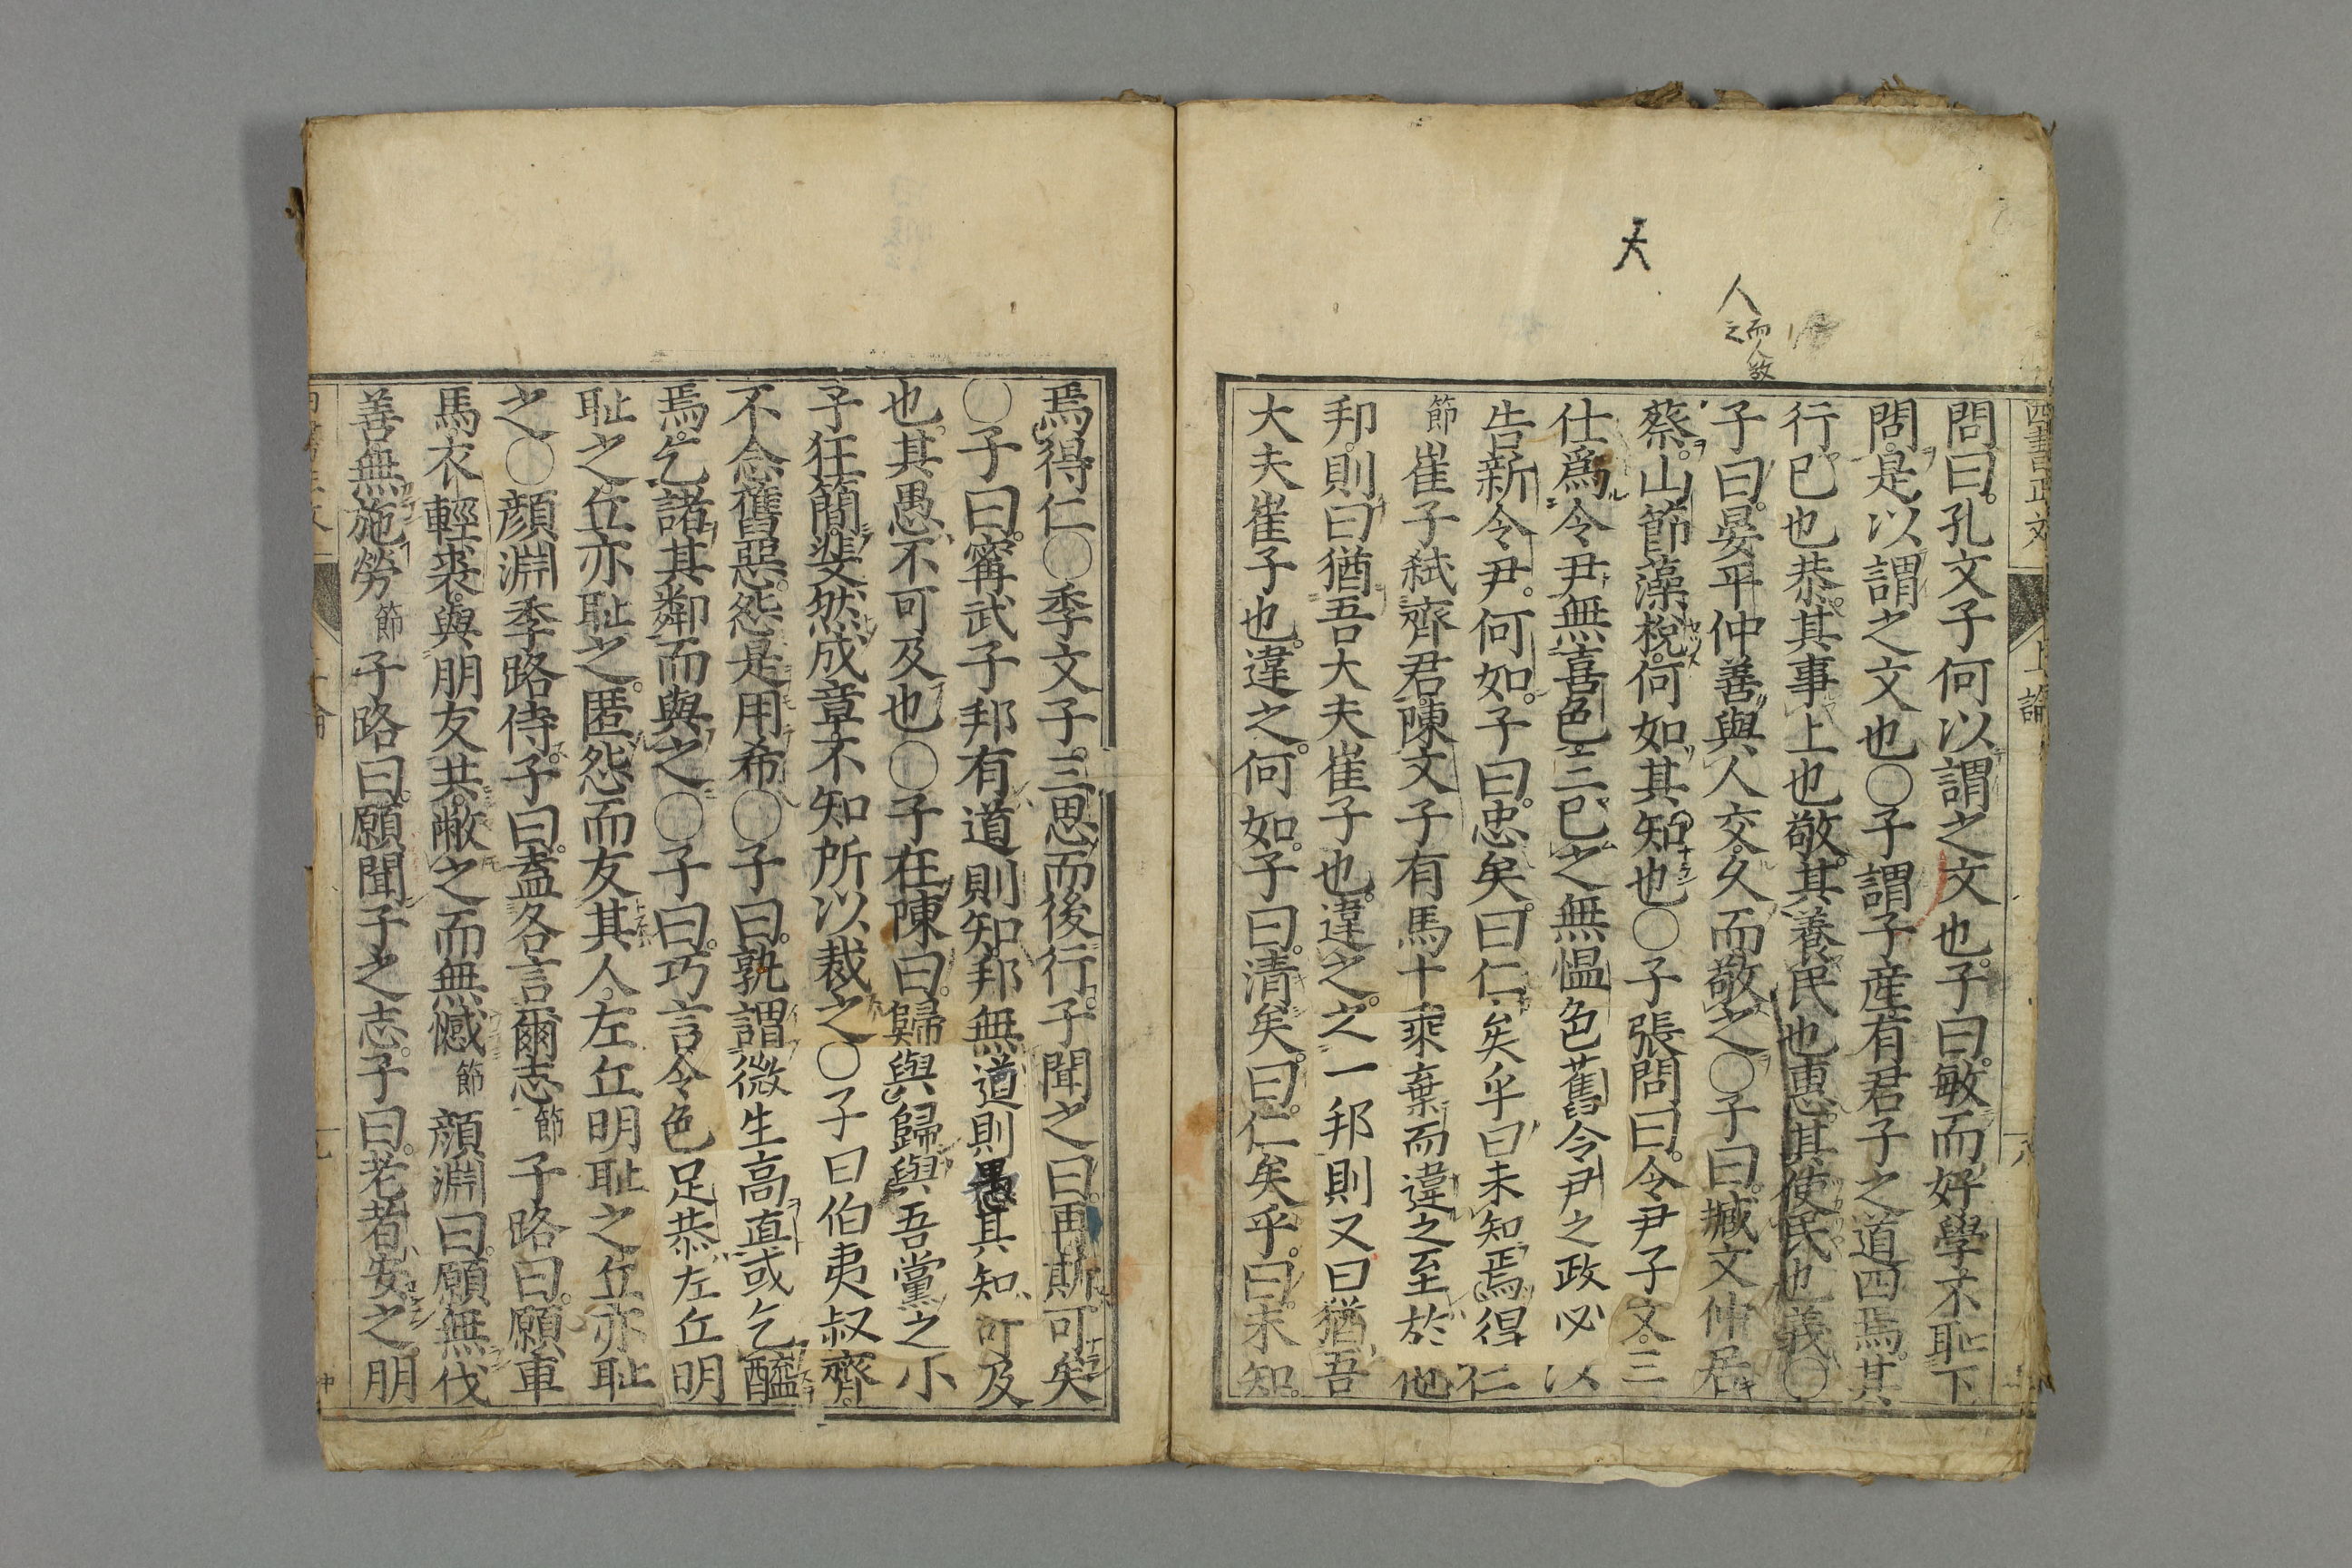 四書正文
上論
八
天
人
而
之
人敬
問曰孔文子何以謂之文也子曰敏而好學不恥下
問是以謂之文也○子謂子産有君子之道四焉其
行已也恭其事上也敬其養民也惠其使民也義○
子曰晏平仲善與人交久而敬之○子曰臧文仲居
蔡山節藻梲何如其知也○子張問曰令尹子文三
仕爲令尹無喜色三已之無慍色舊令尹之政必以
告新令尹何如子曰忠矣曰仁矣乎曰未知焉得仁
節崔子弑齊君陳文子有馬十乘棄而違之至於他
邦則曰猶吾大夫崔子也違之之一邦則又曰猶吾
大夫崔子也違之何如子曰清矣曰仁矣乎曰未知
焉得仁○季文子三思而後行子聞之曰再斯可矣
○子曰甯武子邦有道則知邦無道則愚其知可及
也其愚不可及也○子在陳曰歸與歸與吾黨之小
子狂簡斐然成章不知所以裁之○子曰伯夷叔齊
不念舊惡怨是用希○子曰孰謂微生高直或乞醯
焉乞諸其鄰而與之○子曰巧言令色足恭左丘明
恥之丘亦恥之匿怨而友其人左丘明恥之丘亦恥
之○顔淵季路侍子曰盍各言爾志節子路曰願車
馬衣輕裘與朋友共敝之而無憾節顔淵曰願無伐
善無施勞節子路曰願聞子之志子曰老者安之朋